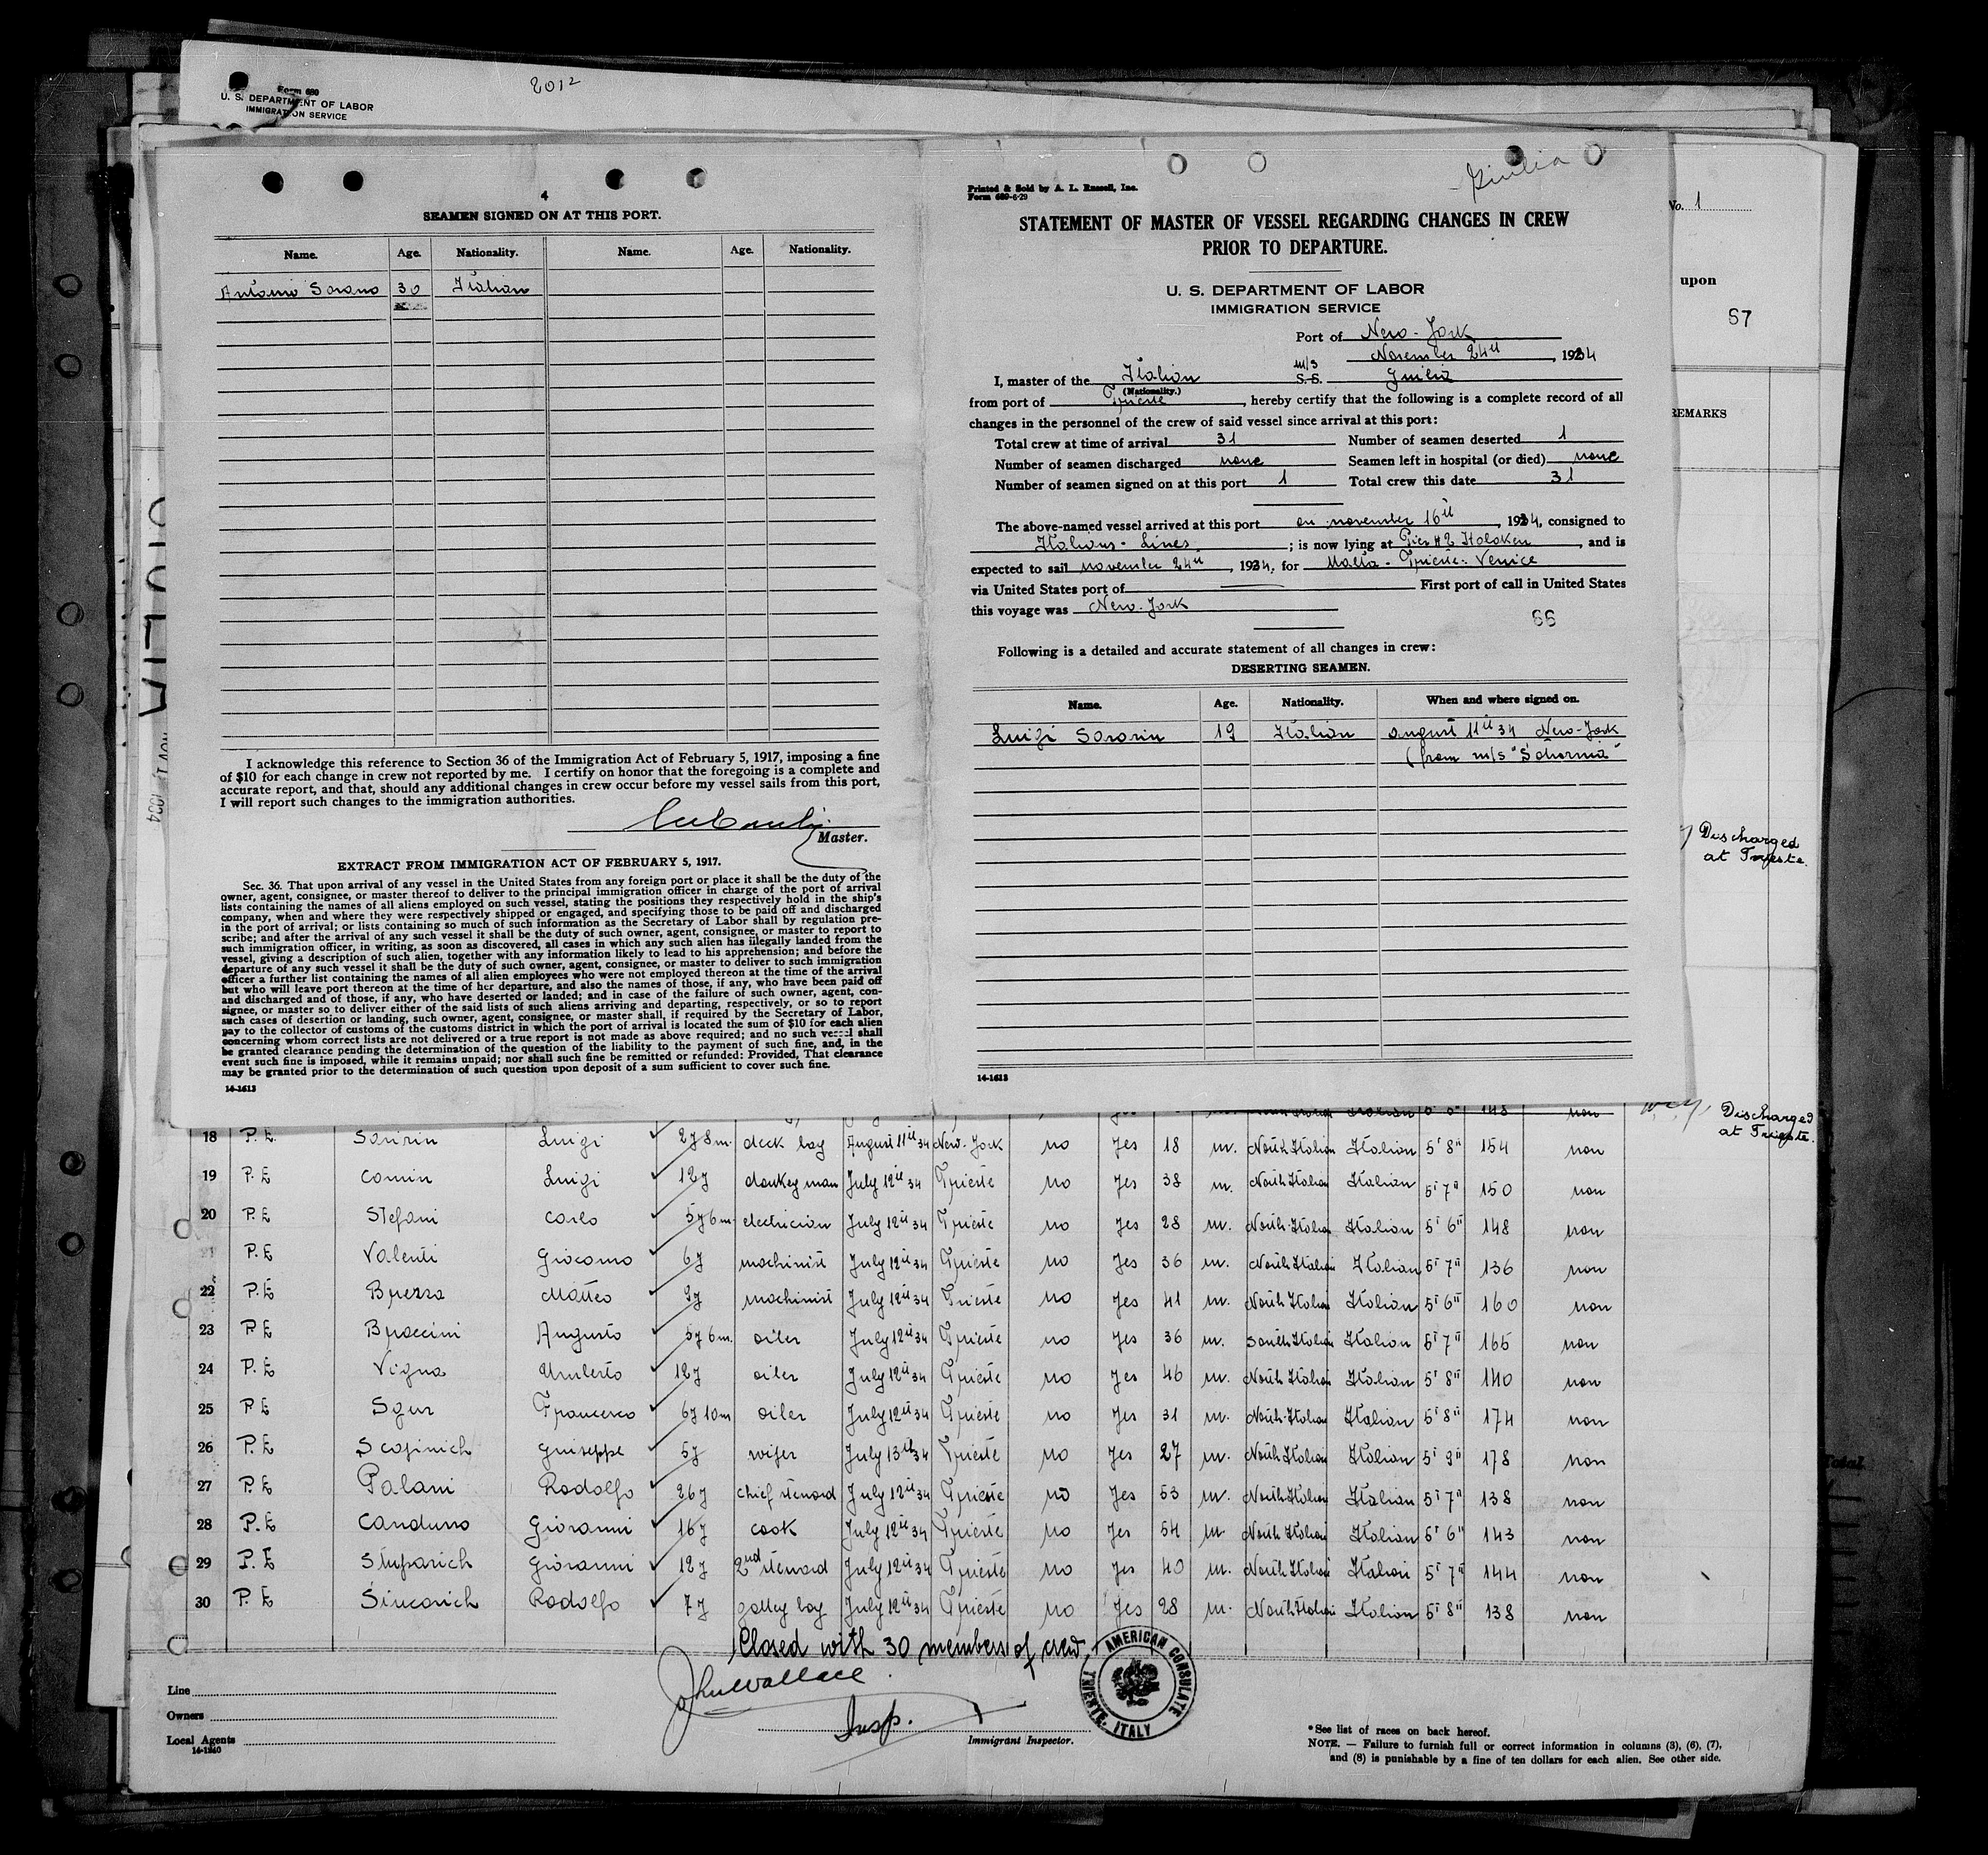 Form 680
U. S. DEPARTMENT OF LABOR
IMMIGRATION SERVICE
2012
4
SEAMEN SIGNED ON AT THIS PORT.
Name. Age. Nationality. Name. Age. Nationality.
Antonio Sorano 30 Italian
I acknowledge this reference to Section 36 of the Immigration Act of February 5, 1917, imposing a fine
of $10 for each change in crew not reported by me. I certify on honor that the foregoing is a complete and
accurate report, and that, should any additional changes in crew occur before my vessel sails from this port,
I will report such changes to the immigration authorities.
Master.
EXTRACT FROM IMMIGRATION ACT OF FEBRUARY 5, 1917.
Sec. 36. That upon arrival of any vessel in the United States from any foreign port or place it shall be the duty of the
owner, agent, consignee, or master thereof to deliver to the principal immigration officer in charge of the port of arrival
lists containing the names of all aliens employed on such vessel, stating the positions they respectively hold in the ship's
company, when and where they were respectively shipped or engaged, and specifying those to be paid off and discharged
in the port of arrival; or lists containing so much of such information as the Secretary of Labor shall by regulation pre-
scribe; and after the arrival of any such vessel it shall be the duty of such owner, agent, consignee, or master to report to
such immigration officer, in writing, as soon as discovered, all cases in which any such alien has illegally landed from the
vessel, giving a description of such alien, together with any information likely to lead to his apprehension; and before the
departure of any such vessel it shall be the duty of such owner, agent, consignee, or master to deliver to such immigration
officer a further list containing the names of all alien employees who were not employed thereon at the time of the arrival
but who will leave port thereon at the time of her departure, and also the names of those, if any, who have been paid off
and discharged and of those, if any, who have deserted or landed; and in case of the failure of such owner, agent, con-
signee, or master so to deliver either of the said lists of such aliens arriving and departing, respectively, or so to report
such cases of desertion or landing, such owner, agent, consignee, or master shall, if required by the Secretary of Labor,
pay to the collector of customs of the customs district in which the port of arrival is located the sum of $10 for each alien
concerning whom correct lists are not delivered or a true report is not made as above required; and no such vessel shall
be granted clearance pending the determination of the question of the liability to the payment of such fine, and, in the
event such fine is imposed, while it remains unpaid; nor shall such fine be remitted or refunded: Provided, That clearance
may be granted prior to the determination of such question upon deposit of a sum sufficient to cover such fine.
14-1613
Giulia
Printed & Sold by A. L. Russell, Inc.
Form 689-6-29
STATEMENT OF MASTER OF VESSEL REGARDING CHANGES IN CREW
PRIOR TO DEPARTURE.
U. S. DEPARTMENT OF LABOR
IMMIGRATION SERVICE
Port of New-York
November 24th, 1934
I, master of the Italian m/s S.S. Giulia
(Nationality.)
from port of Trieste, hereby certify that the following is a complete record of all
changes in the personnel of the crew of said vessel since arrival at this port:
Total crew at time of arrival 31 Number of seamen deserted 1
Number of seamen discharged none Seamen left in hospital (or died) none
Number of seamen signed on at this port 1 Total crew this date 31
The above-named vessel arrived at this port on november 16th, 1934, consigned to
Italians-Lines; is now lying at Pier #2 Hoboken, and is
expected to sail november 24th, 1934, for Malta-Trieste-Venice
via United States port of First port of call in United States
this voyage was New-York
66
Following is a detailed and accurate statement of all changes in crew:
DESERTING SEAMEN.
Name. Age. Nationality. When and where signed on.
Luigi Sorarin 19 Italian august 11th 34 New-York
(from m/s "Saturnia"
14-1613
No. 1
upon
67
REMARKS
Discharged
at Trieste.
Discharged
at Trieste.
18 P.E. Soririn Luigi 2y 8m. deck boy August 11th 34 New-York no yes 18 m. North Italian Italian 5' 8" 154 non
19 P.E Comin Luigi 12y donkey man July 12th 34 Trieste no yes 38 m. North Italian Italian 5' 7" 150 non
20 P.E Stefani Carlo 5y 6m. electrician July 12th 34 Trieste no yes 28 m. North Italian Italian 5' 6" 148 non
21 P.E Valenti Giacomo 6y machinist July 12th 34 Trieste no yes 36 m. North Italian Italian 5' 7" 136 non
22 P.E Brezza Matteo 9y machinist July 12th 34 Trieste no yes 41 m. North Italian Italian 5' 6" 160 non
23 P.E Braccini Augusto 5y 6m. oiler July 12th 34 Trieste no yes 36 m. South Italian Italian 5' 7" 165 non
24 P.E. Vigna Umberto 12y oiler July 12th 34 Trieste no yes 46 m. North Italian Italian 5' 8" 140 non
25 P.E Sgur Francesco 6y 10m oiler July 12th 34 Trieste no yes 31 m. North Italian Italian 5' 8" 174 non
26 P.E Scopinich Giuseppe 5y wiper July 13th 34 Trieste no yes 27 m. North Italian Italian 5' 9" 178 non
27 P.E Palani Rodolfo 26y chief steward July 12th 34 Trieste no yes 53 m. North Italian Italian 5' 7" 138 non
28 P.E Canduno Giovanni 16y cook July 12th 34 Trieste no yes 54 m. North Italian Italian 5' 6" 143 non
29 P.E Stuparich Giovanni 12y 2nd steward July 12th 34 Trieste no yes 40 m. North Italian Italian 5' 7" 144 non
30 P.E Sincovich Rodolfo 7y galley boy July 12th 34 Trieste no yes 28 m. North Italian Italian 5' 8" 138 non
Closed with 30 members of crew
John Wallace
Insp.
Immigrant Inspector.
AMERICAN CONSULATE
TRIESTE, ITALY
Line
Owners
Local Agents
14-1240
*See list of races on back hereof.
NOTE. — Failure to furnish full or correct information in columns (3), (6), (7),
and (8) is punishable by a fine of ten dollars for each alien. See other side.
Total